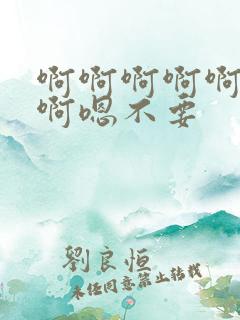 啊啊啊啊啊
啊嗯不要
劉良恒
未经同意禁止转载